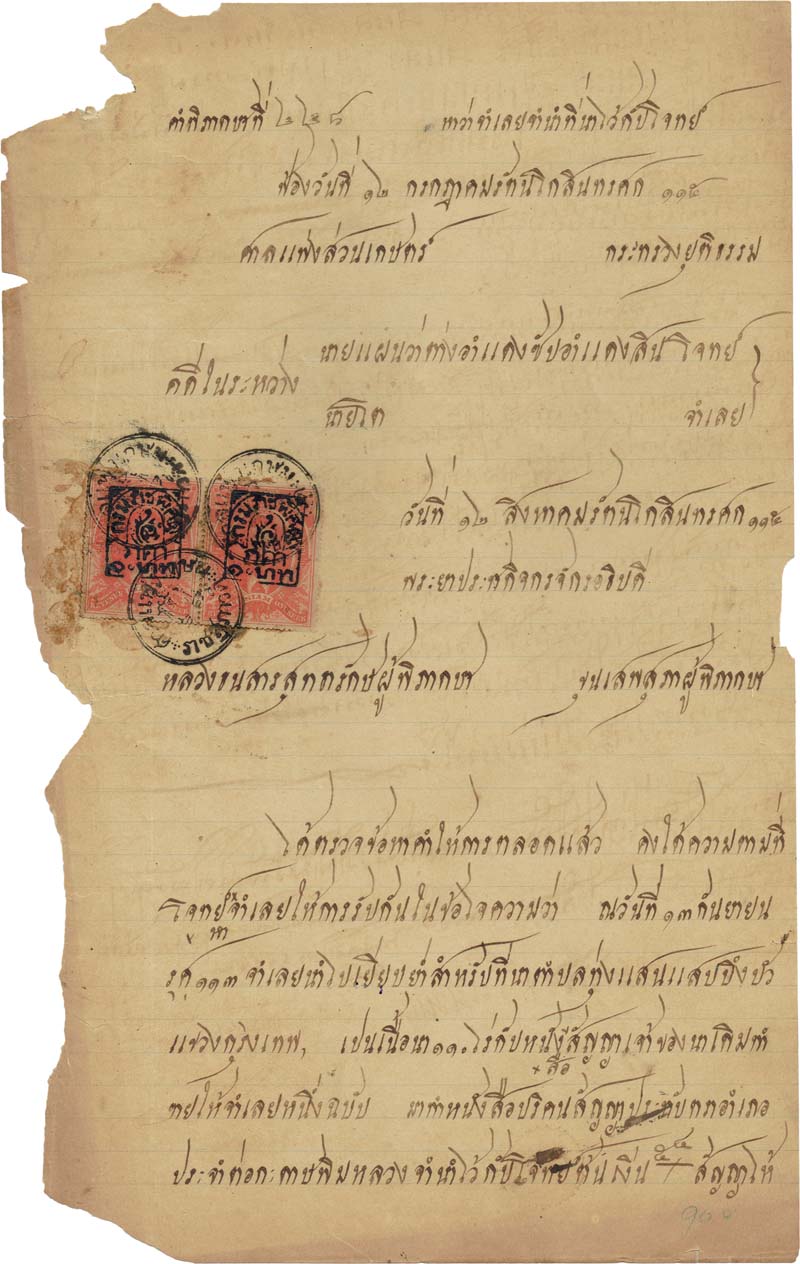 คำพิภาคษาที่ ๖๖๘ หาว่าจำเลยจำนำที่นาไว้กับโจทย์
ฟ้องวันที่ ๑๒ กรกฎาคมรัตนโกสินทรศก ๑๑๕
ศาลแพ่งส่วนเกษตร์ กระทรวงยุติธรรม
คดีในระหว่าง
นายแผ่นว่าต่างอำแดงซับอำแดงสิน โจทย์
นายโต จำเลย
วันที่ ๑๒ สิงหาคมรัตนโกสินทรศก ๑๑๕
พระยาประชุกิจกรจักรอธิบดี
หลวงธนสารสุทธารักษผู้พิภาคษา ขุนเสพสุภาผู้พิภาคษา
ได้ตรวจข้อหาคำให้การตลอดแล้ว คงได้ความตามที่
โจทย์หาจำเลยให้การรับกันในข้อใจความว่า ณวันที่ ๑๓ กันยายน
ร,ศ, ๑๑๓ จำเลยนำใบเยียบย่ำสำหรับที่นาตำบลทุ่งแสนแสบบึงบัว
แขวงกรุงเทพ, เปนเนื้อนา ๑๑๐ ไร่กับหนังสือสัญญาเจ้าของนาเดิมทำ
ขายให้จำเลยหนึ่งฉบับ มาทำหนังสือบริคนสัญญาประทับตราอำเภอ
ประจำต่อกะดาษพิมหลวง จำนำไว้กับโจทย์ เงิน สัญญาให้